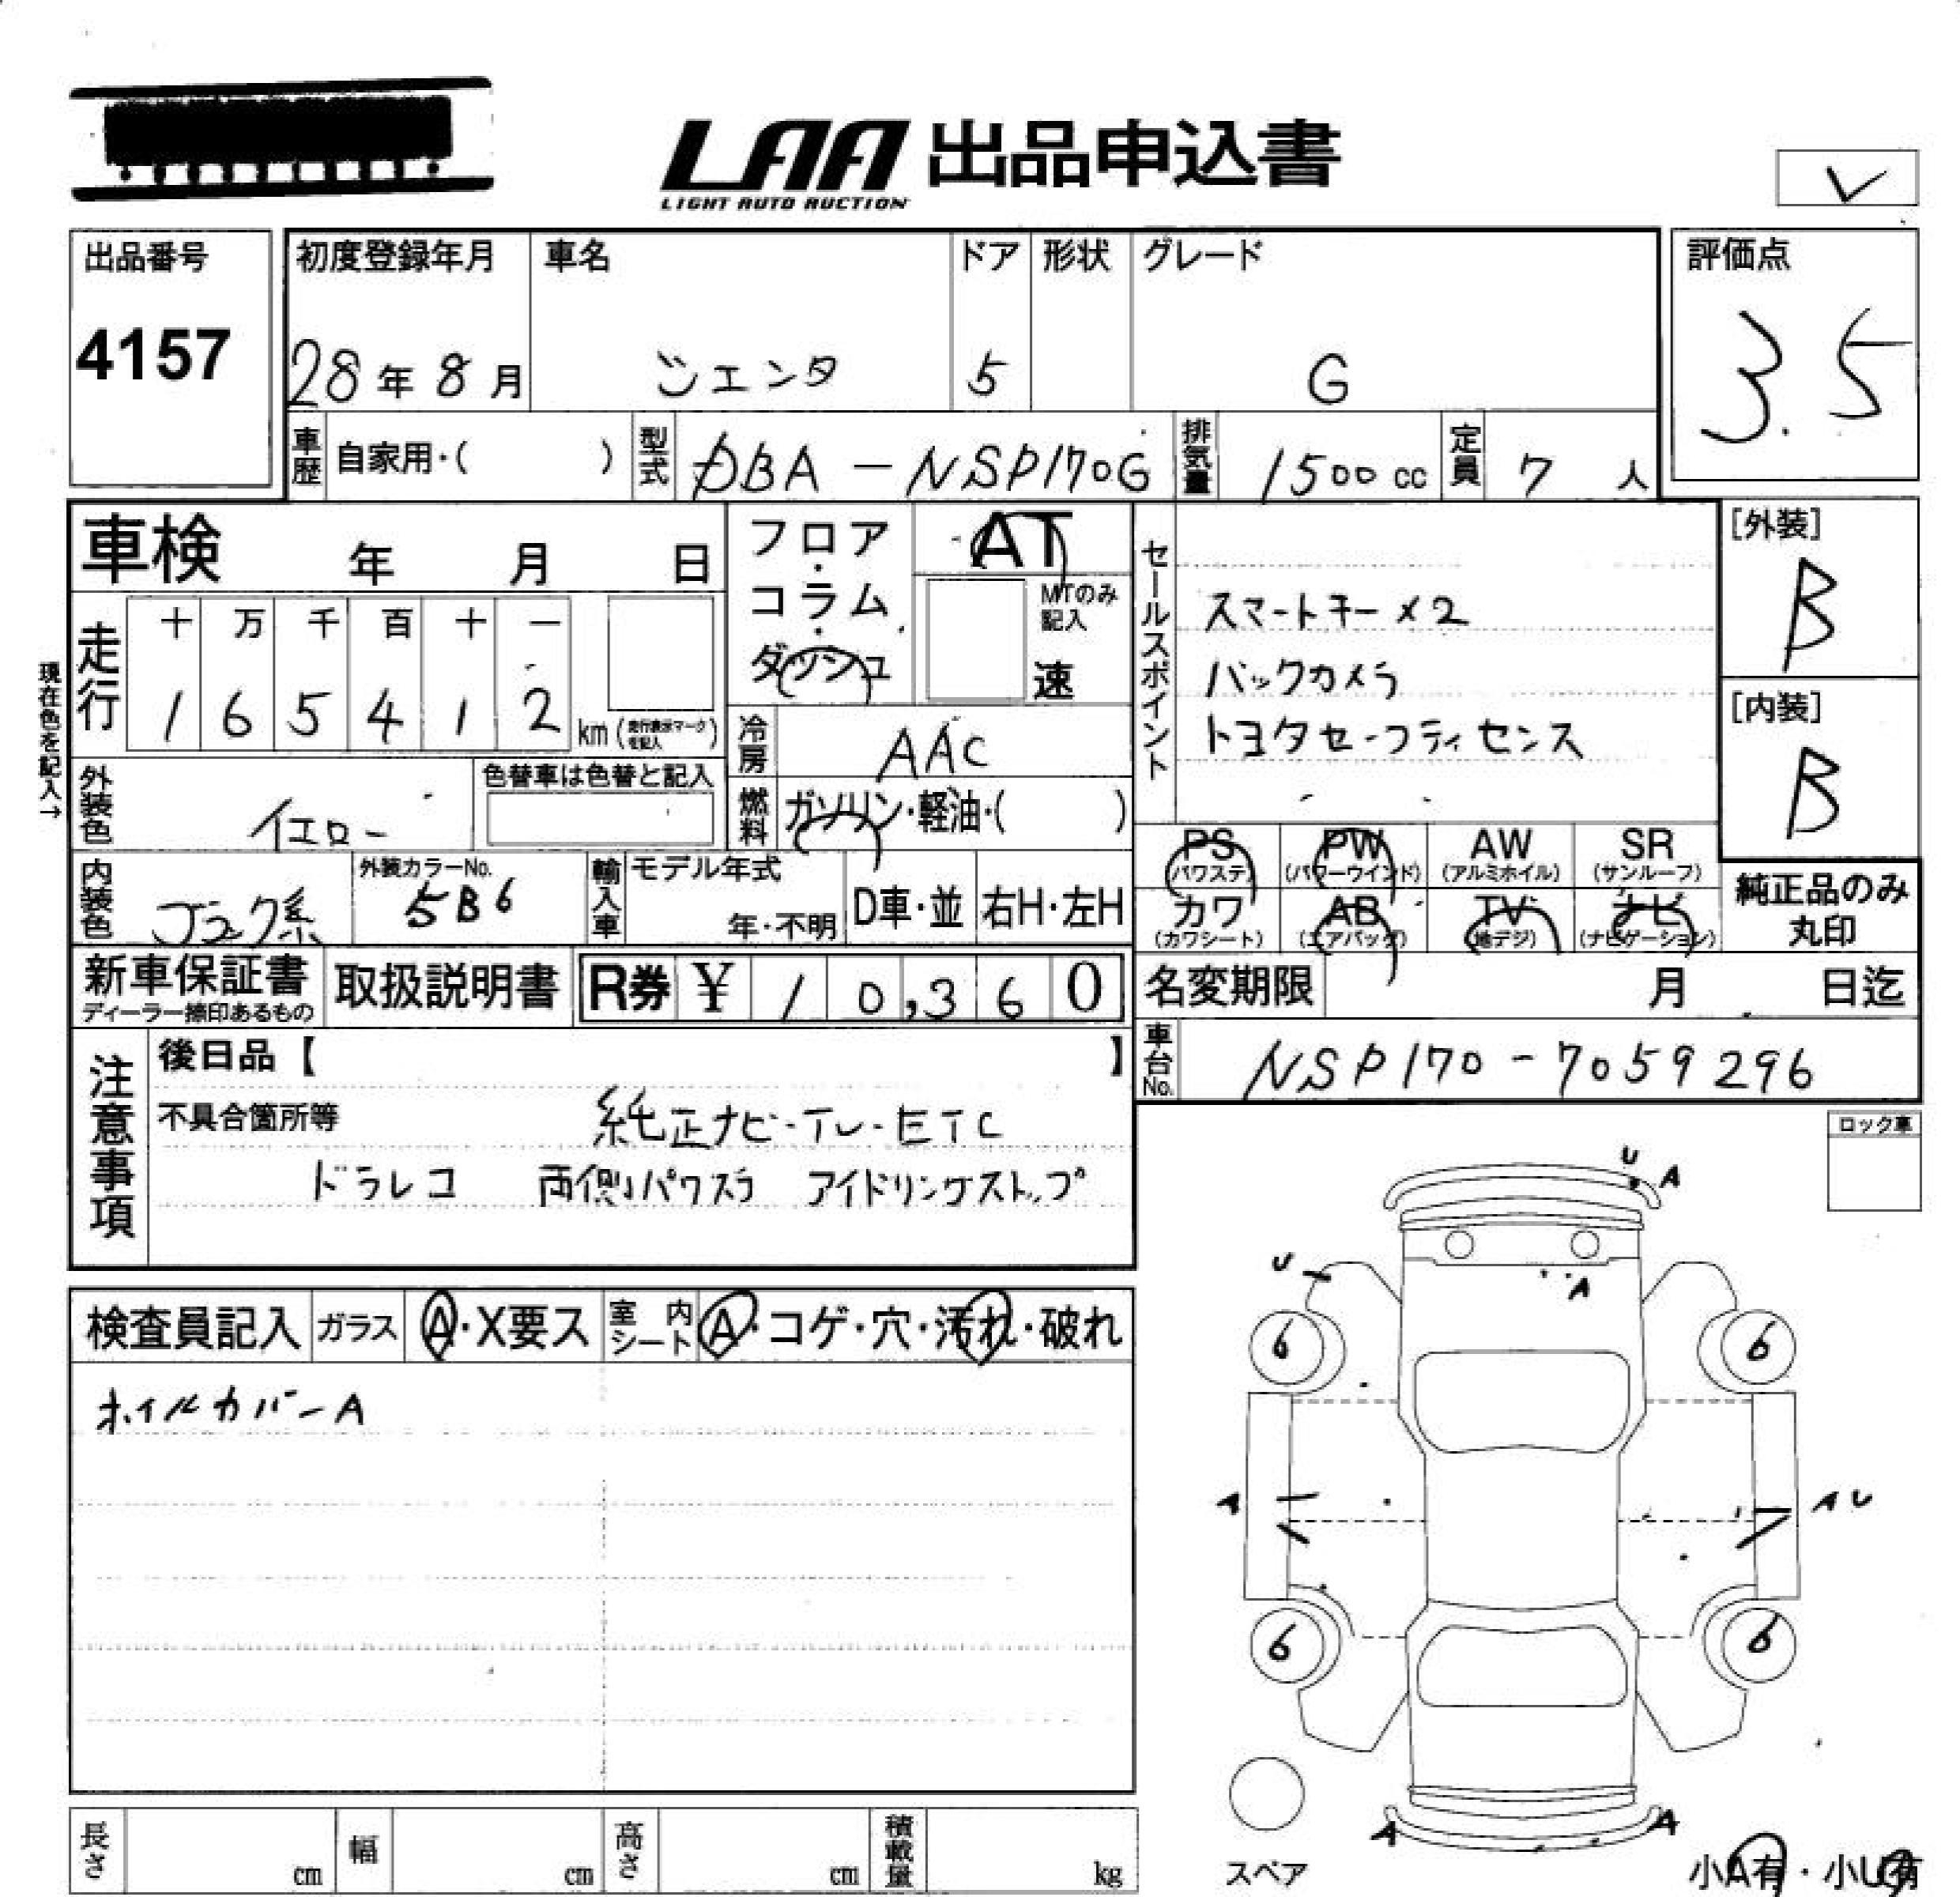 LAA 出品申込書
LIGHT AUTO AUCTION
出品番号
4157
初度登録年月
28年8月
車名
シエンタ
ドア
5
形状
グレード
G
評価点
3.5
車歴 自家用・( )
型式 DBA-NSP170G
排気量 1500cc
定員 7人
車検 年 月 日
フロア・コラム・ダッシュ
AT
MTのみ記入
速
セールスポイント
スマートキー×2
バックカメラ
トヨタセーフティセンス
[外装]
B
[内装]
B
現在色を記入→
走行
十 万 千 百 十 一
1 6 5 4 1 2 km(走行表示マークを記入)
冷房 AAC
燃料 ガソリン・軽油・( )
外装色 イエロー
色替車は色替と記入
内装色 ブラック系
外装カラーNo.
5B6
輸入車 モデル年式
年・不明
D車・並
右H・左H
PS (パワステ)
PW (パワーウインド)
AW (アルミホイル)
SR (サンルーフ)
カワ (カワシート)
AB (エアバッグ)
TV (地デジ)
ナビ (ナビゲーション)
純正品のみ
丸印
新車保証書
ディーラー捺印あるもの
取扱説明書
R券 ¥ 10,360
名変期限 月 日迄
車台No. NSP170-7059296
注意事項
後日品【 】
不具合箇所等 純正ナビ・TV・ETC
ドラレコ 両側パワスラ アイドリングストップ
ロック車
検査員記入 ガラス A・X要ス 室内シート A・コゲ・穴・汚れ・破れ
ホイルカバーA
U A
U
A
6 6
A
A U
6 6
A A
スペア
小A有・小U有
長さ cm 幅 cm 高さ cm 積載量 kg